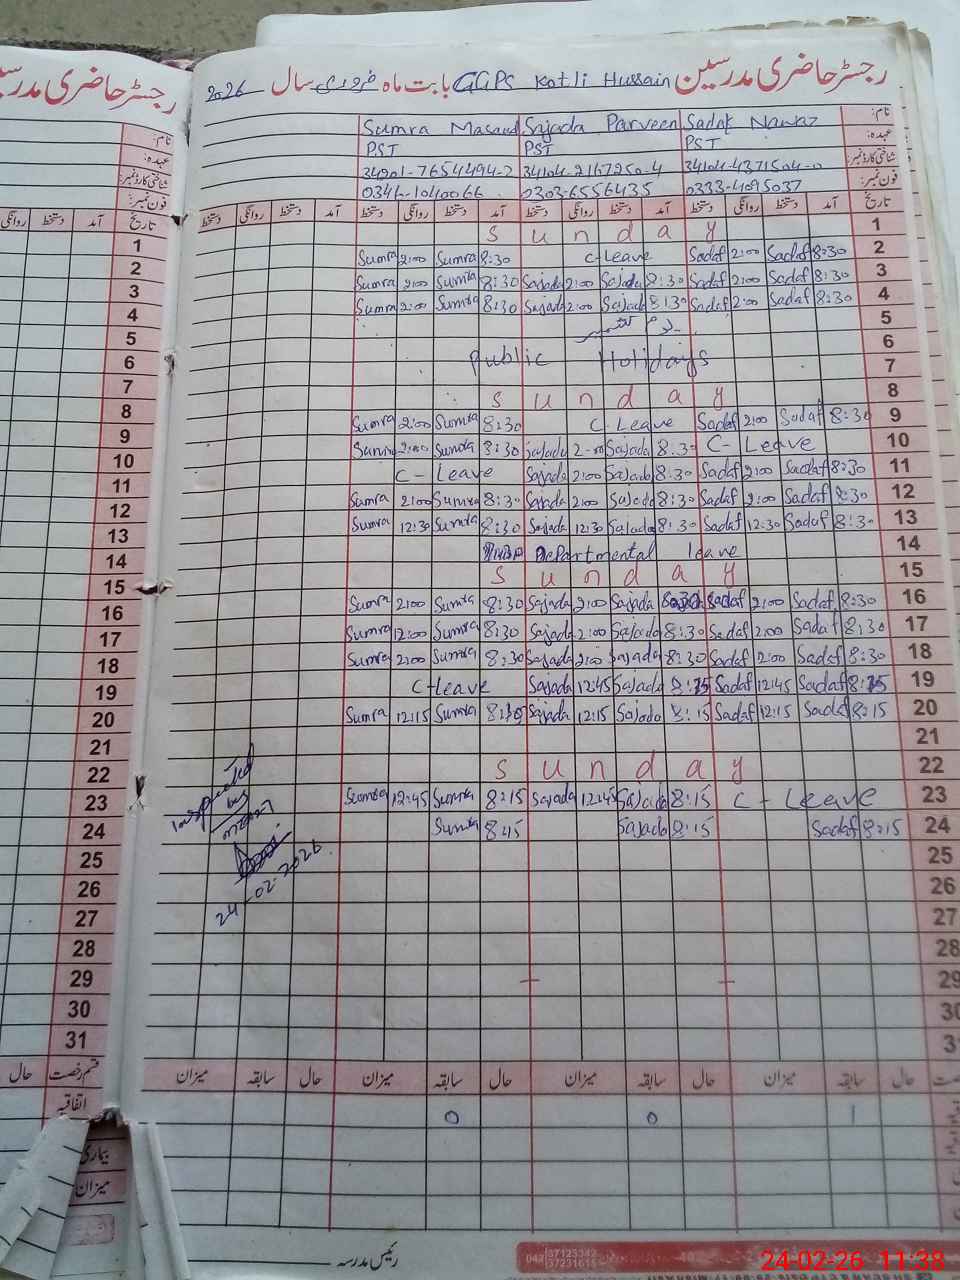 رجسٹر حاضری مدرسین GGPS Kotli Hussain بابت ماہ فروری سال 2026
رجسٹر حاضری مدرسین
نام: Sadaf Nawaz Sajada Parveen Sumra Masaud
عہدہ: PST PST PST
شناختی کارڈ نمبر: 34104-4371504-0 34104-2167250-4 34201-7654494-2
فون نمبر: 0333-4095037 0303-6556435 0346-1040066
تاریخ آمد دستخط روانگی دستخط آمد دستخط روانگی دستخط آمد دستخط روانگی دستخط آمد دستخط روانگی دستخط
1 Sunday
2 Sumra 2:00 Sumra 8:30 C-Leave Sadaf 2:00 Sadaf 8:30
3 Sumra 2:00 Sumra 8:30 Sajada 2:00 Sajada 8:30 Sadaf 2:00 Sadaf 8:30
4 Sumra 2:00 Sumra 8:30 Sajada 2:00 Sajada 8:30 Sadaf 2:00 Sadaf 8:30
5 یوم کشمیر
6
7 Public Holidays
8 Sunday
9 Sumra 2:00 Sumra 8:30 C-Leave Sadaf 2:00 Sadaf 8:30
10 Sumra 2:00 Sumra 8:30 Sajada 2:00 Sajada 8:30 C-Leave
11 C-Leave Sajada 2:00 Sajada 8:30 Sadaf 2:00 Sadaf 8:30
12 Sumra 2:00 Sumra 8:30 Sajada 2:00 Sajada 8:30 Sadaf 2:00 Sadaf 8:30
13 Sumra 12:30 Sumra 8:30 Sajada 12:30 Sajada 8:30 Sadaf 12:30 Sadaf 8:30
14 Departmental leave
15 Sunday
16 Sumra 2:00 Sumra 8:30 Sajada 2:00 Sajada 8:30 Sadaf 2:00 Sadaf 8:30
17 Sumra 12:00 Sumra 8:30 Sajada 2:00 Sajada 8:30 Sadaf 2:00 Sadaf 8:30
18 Sumra 2:00 Sumra 8:30 Sajada 2:00 Sajada 8:30 Sadaf 2:00 Sadaf 8:30
19 C-leave Sajada 12:45 Sajada 8:15 Sadaf 12:45 Sadaf 8:15
20 Sumra 12:15 Sumra 8:15 Sajada 12:15 Sajada 8:15 Sadaf 12:15 Sadaf 8:15
21
22 Sunday
23 Sumra 12:45 Sumra 8:15 Sajada 12:45 Sajada 8:15 C-Leave
24 Sumra 8:15 Sajada 8:15 Sadaf 8:15
Inspected
by
24-02-2026
25
26
27
28
29
30
31
حال سابقہ میزان حال سابقہ میزان حال سابقہ میزان حال سابقہ میزان
1 0 0
تاریخ
دستخط
روانگی
1
2
3
4
5
6
7
8
9
10
11
12
13
14
15
16
17
18
19
20
21
22
23
24
25
26
27
28
29
30
31
قسم رخصت حال
اتفاقیہ
بیماری
میزان
رئیس مدرسہ
042 37123342
24-02-26 11:38